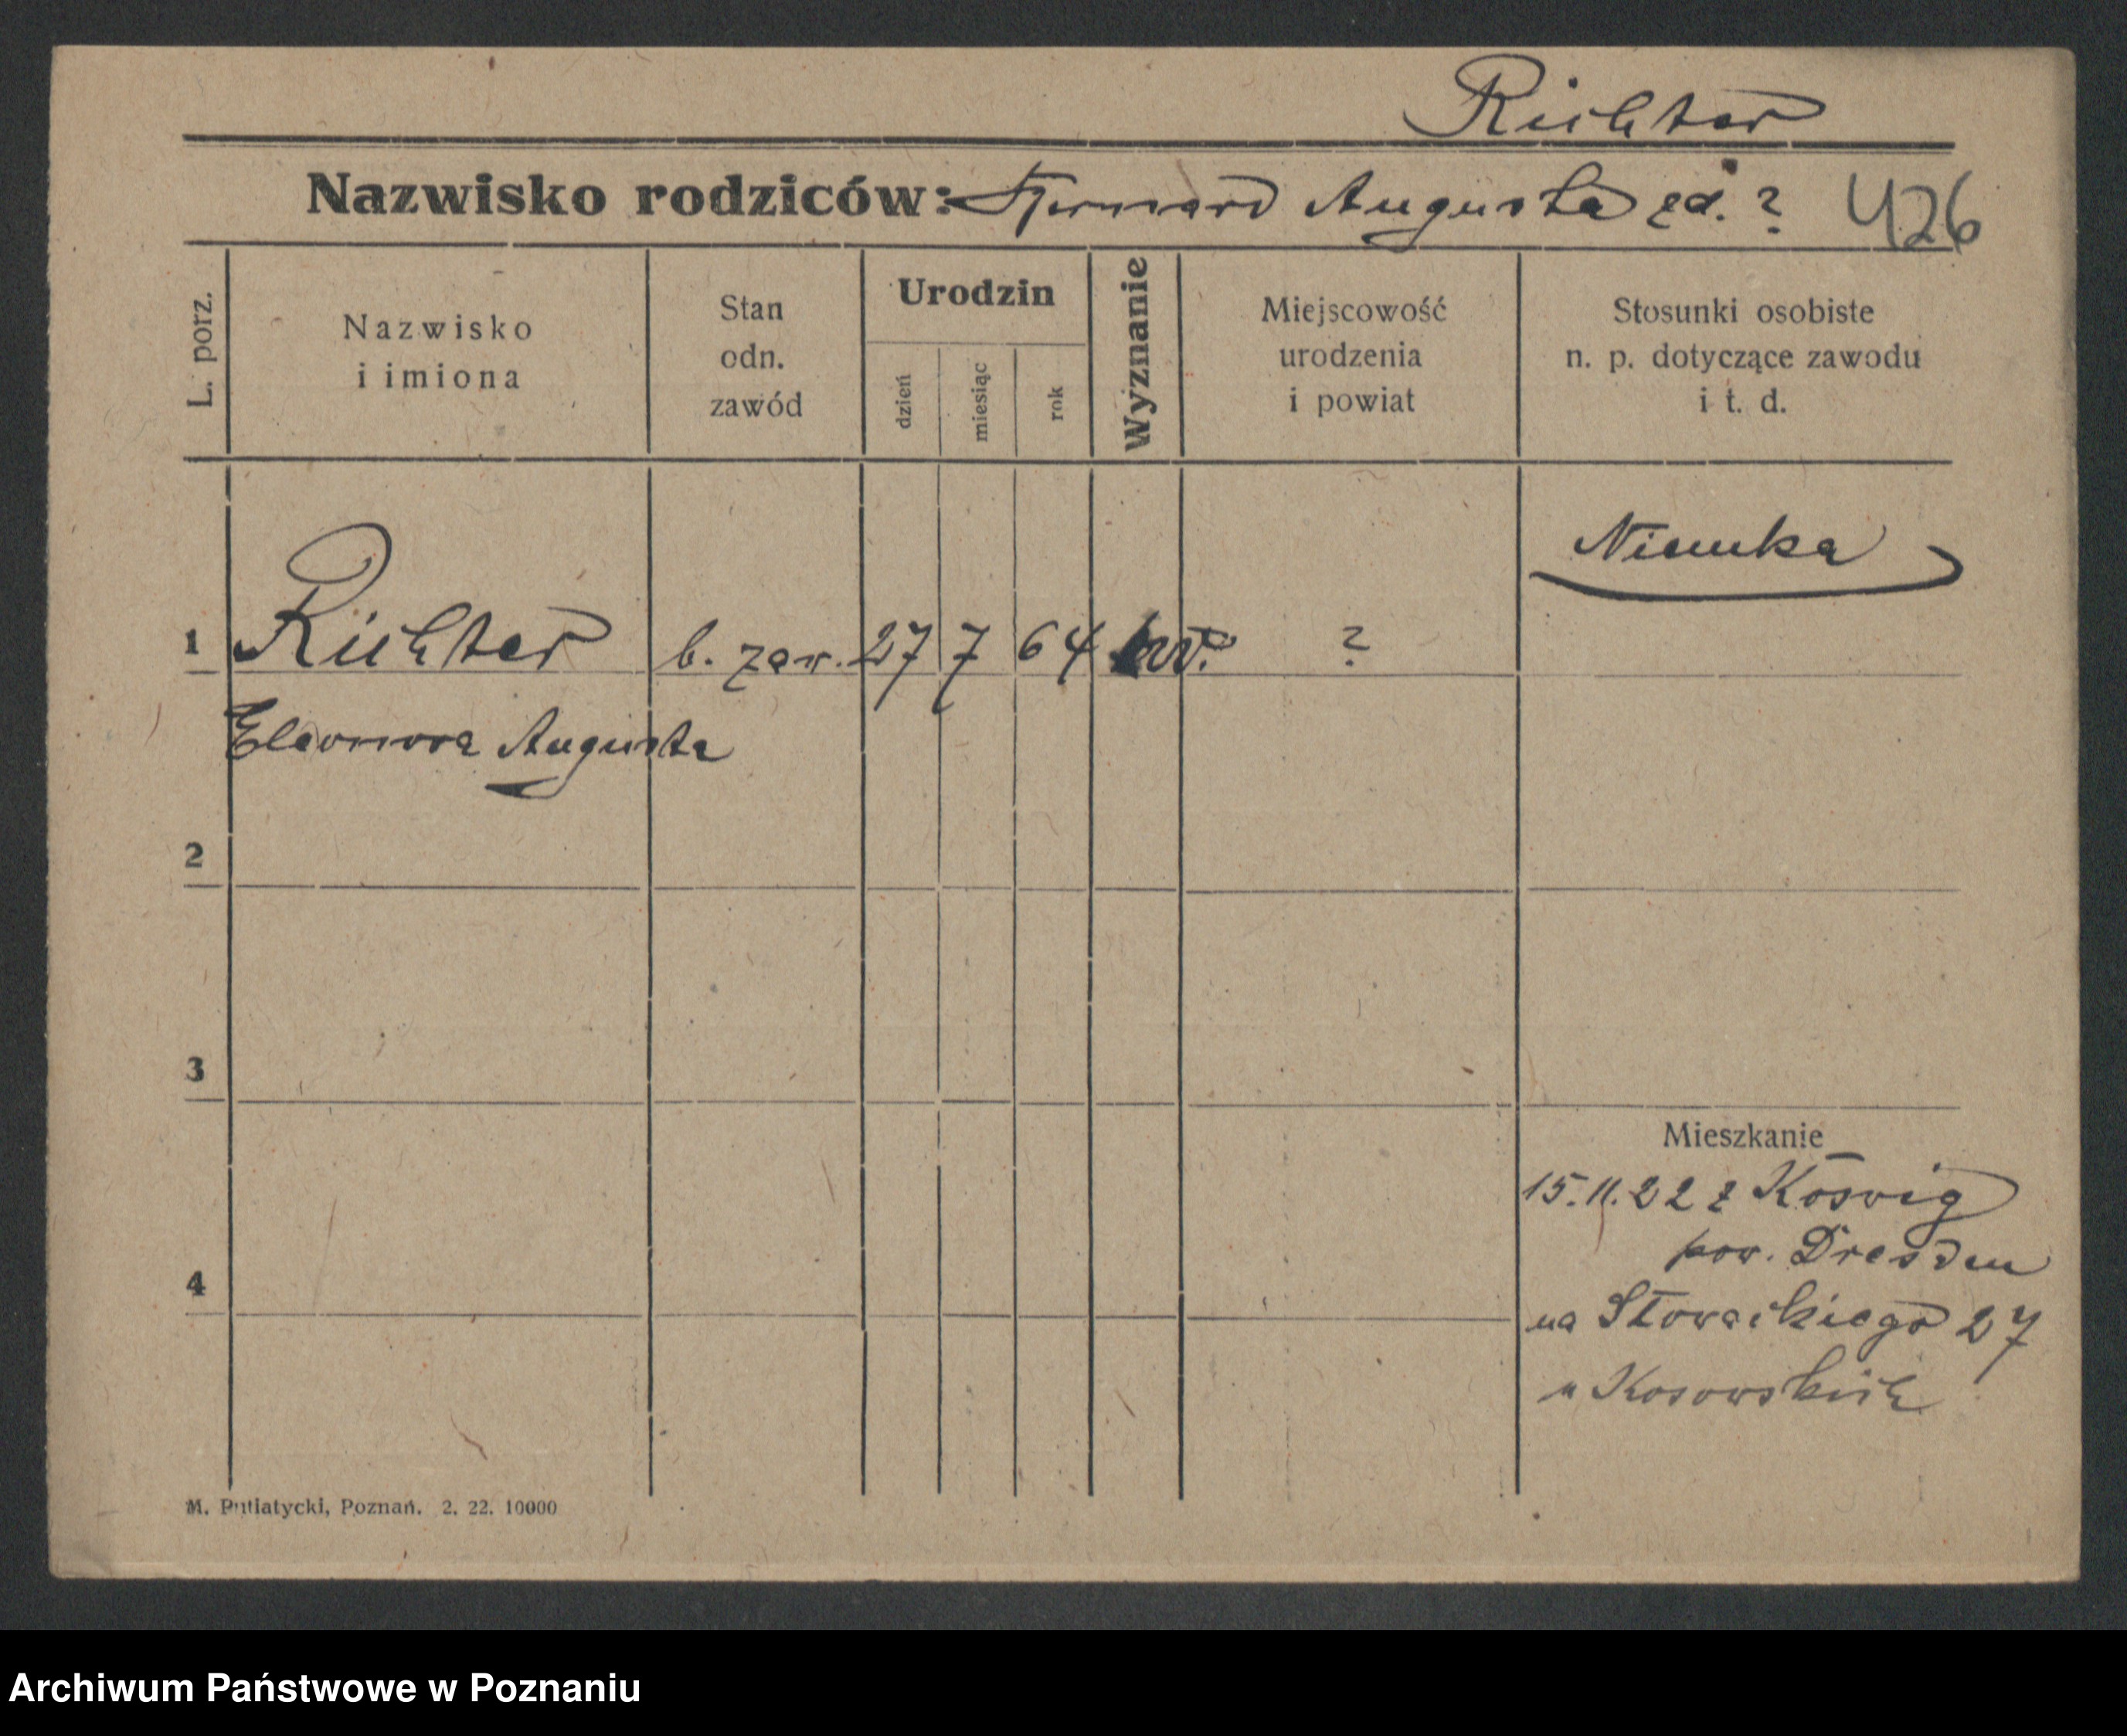 Richter
Nazwisko rodziców: Hermann Augusta zd. ? 426
L. porz.
Nazwisko
i imiona
Stan
odn.
zawód
Urodzin
dzień
miesiąc
rok
Wyznanie
Miejscowość
urodzenia
i powiat
Stosunki osobiste
n. p. dotyczące zawodu
i t. d.
Niemka
1 Richter b. zaw. 27 7 64 ?
Eleonora Augusta
2
3
Mieszkanie
15.11.22 z Koswig
pow. Dresden
4
na Słowackiego 27
u Kosowskich
M. Putiatycki, Poznań. 2. 22. 10000
Archiwum Państwowe w Poznaniu